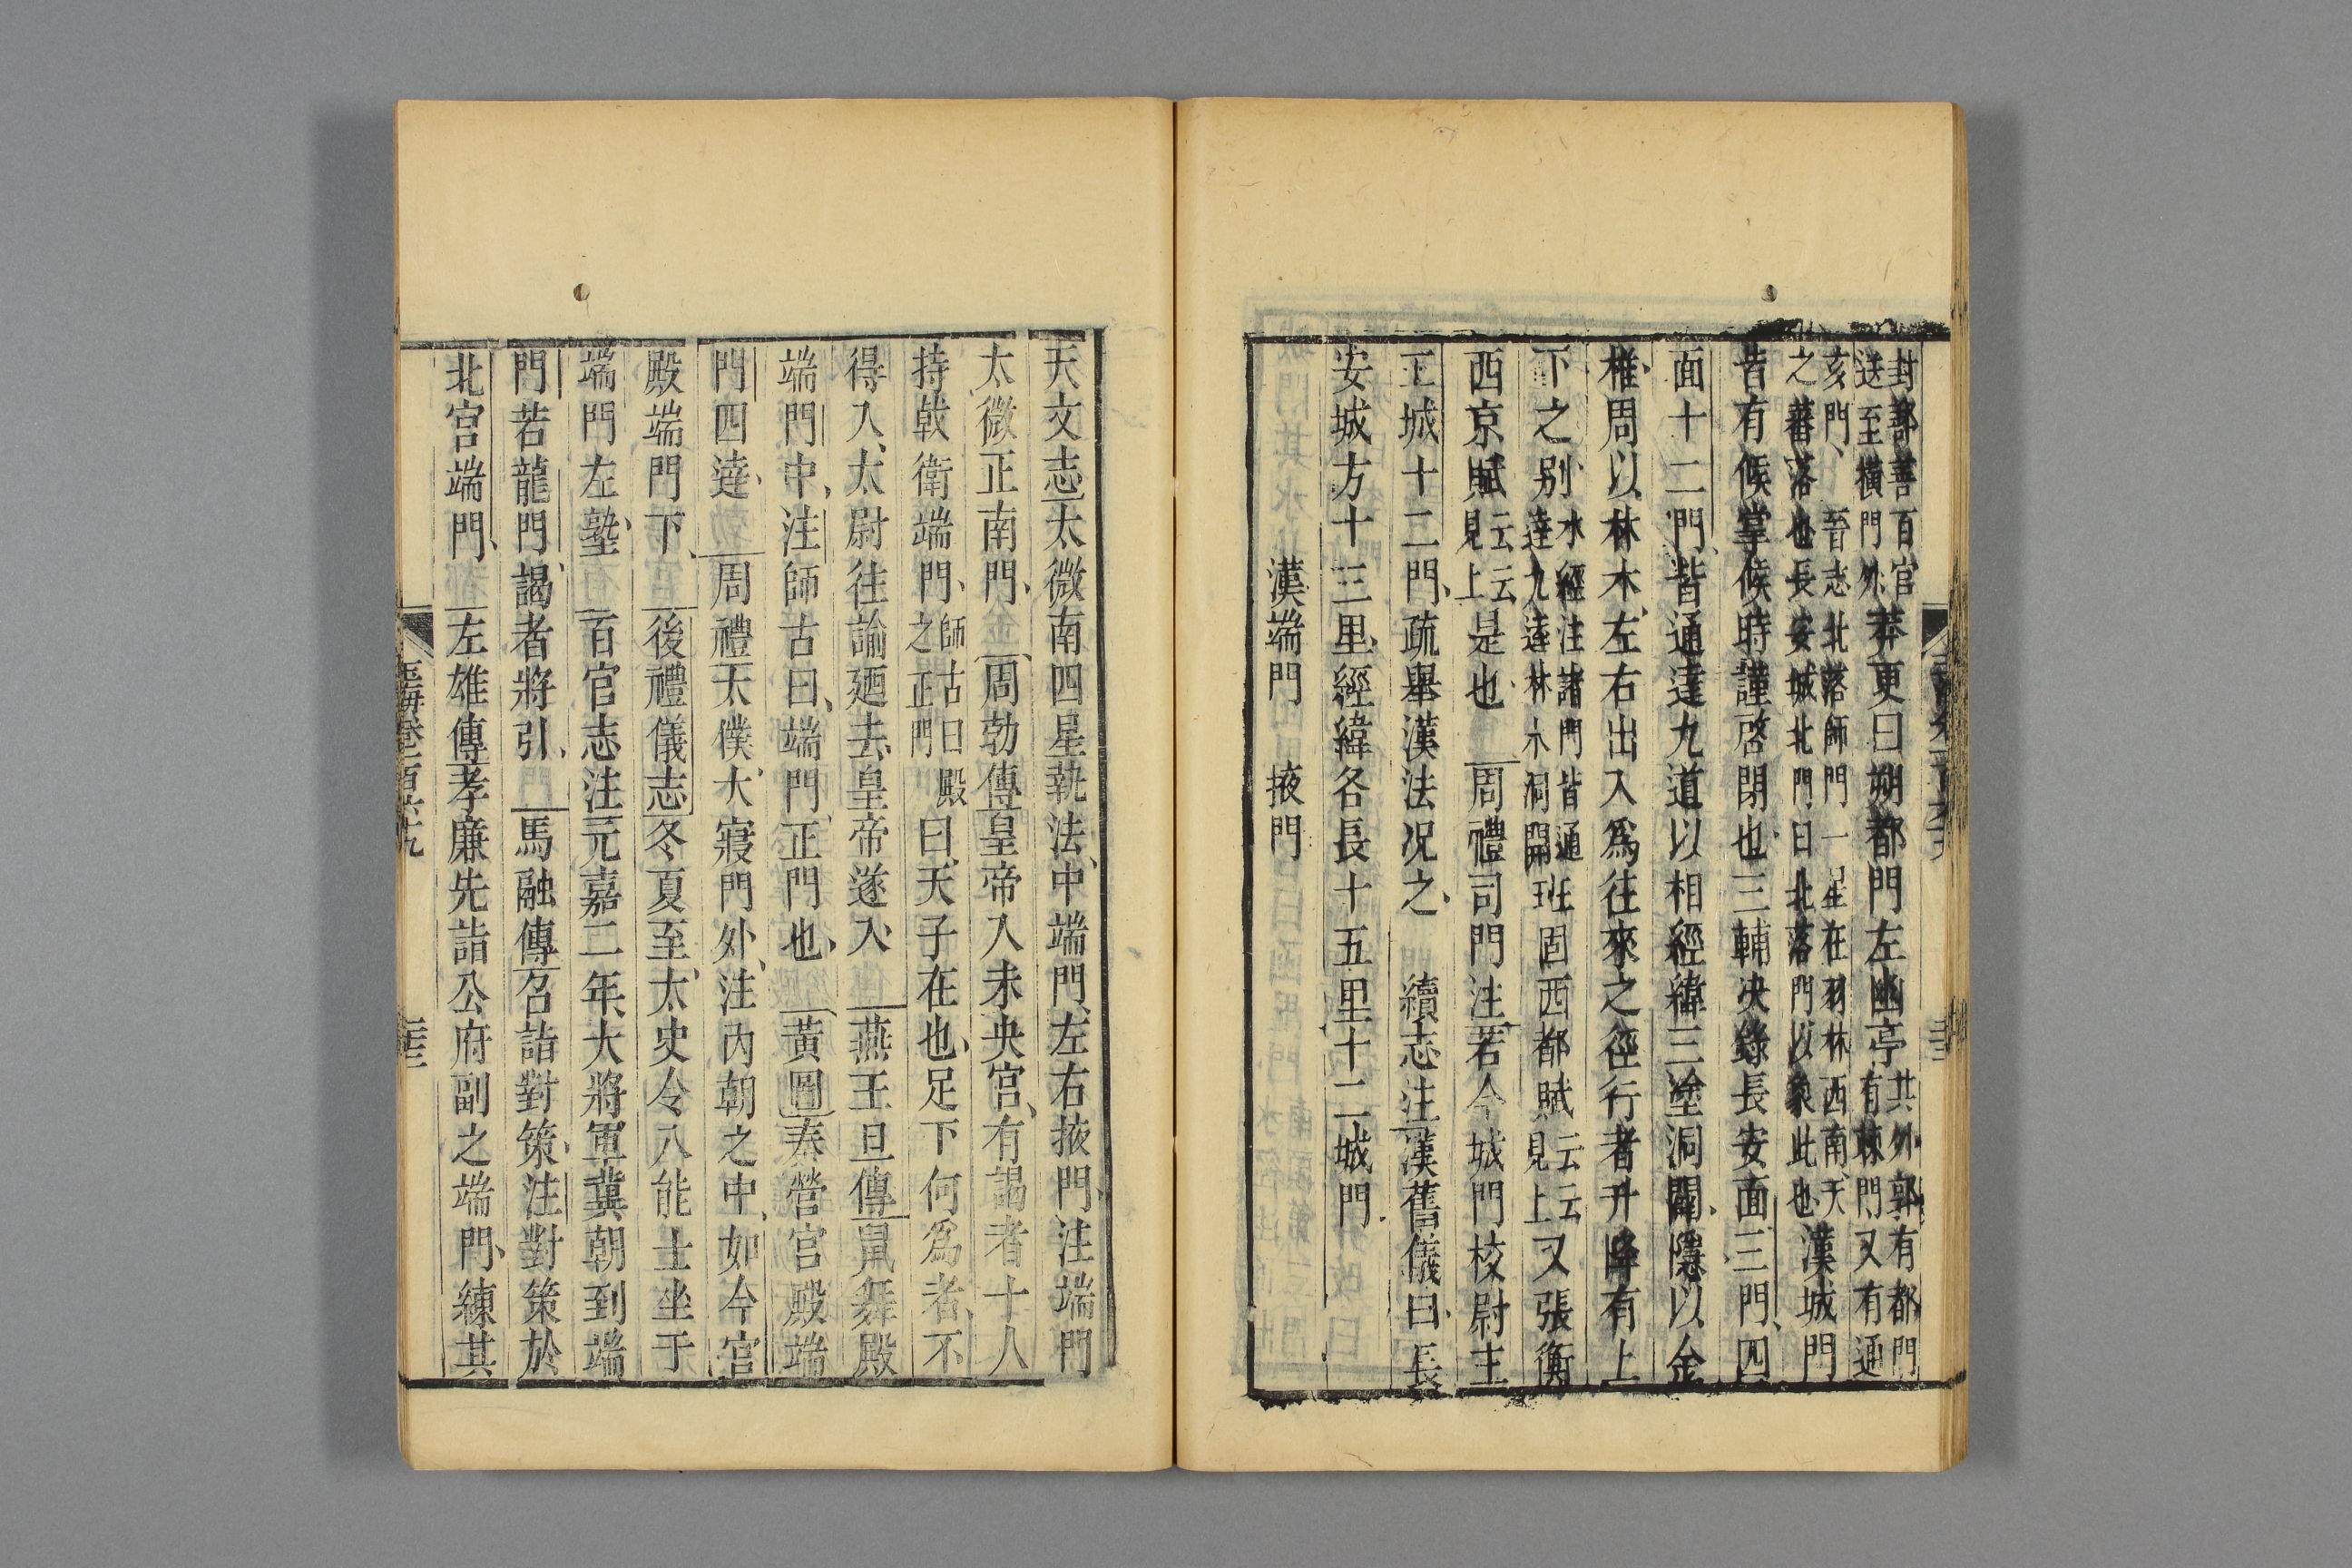 封鄯善百官
送至橫門外
莽更曰朔都門左幽亭
其外郭有都門
有棘門又有通
亥門
晉志北落師門一星在羽林西南天
之蕃落也長安城北門曰北落門以象此也
漢城門
皆有候掌候時謹啓閉也三輔决錄長安面三門四
面十二門皆通達九道以相經緯三塗洞闢隱以金
椎周以林木左右出入爲往來之徑行者升降有上
下之别
水經注諸門皆通
逵九逵林木洞開
班固西都賦
云云
見上
又張衡
西京賦
云云
見上
是也 周禮司門注若今城門校尉主
王城十二門疏舉漢法况之 續志注漢舊儀曰長
安城方十三里經緯各長十五里十二城門
漢端門 掖門
天文志太微南四星執法中端門左右掖門注端門
太微正南門 周勃傳皇帝入未央宫有謁者十人
持戟衛端門
師古曰殿
之正門
曰天子在也足下何爲者不
得入太尉往諭廼去皇帝遂入 燕王旦傳鼠舞殿
端門中注師古曰端門正門也 黃圖秦營宫殿端
門四達 周禮太僕大寢門外注内朝之中如今宫
殿端門下 後禮儀志冬夏至太史令八能士坐于
端門左塾 百官志注元嘉二年大將軍冀朝到端
門若龍門謁者將引 馬融傳召詣對策注對策於
北宫端門 左雄傳孝廉先詣公府副之端門練其
玉海卷一百六十九